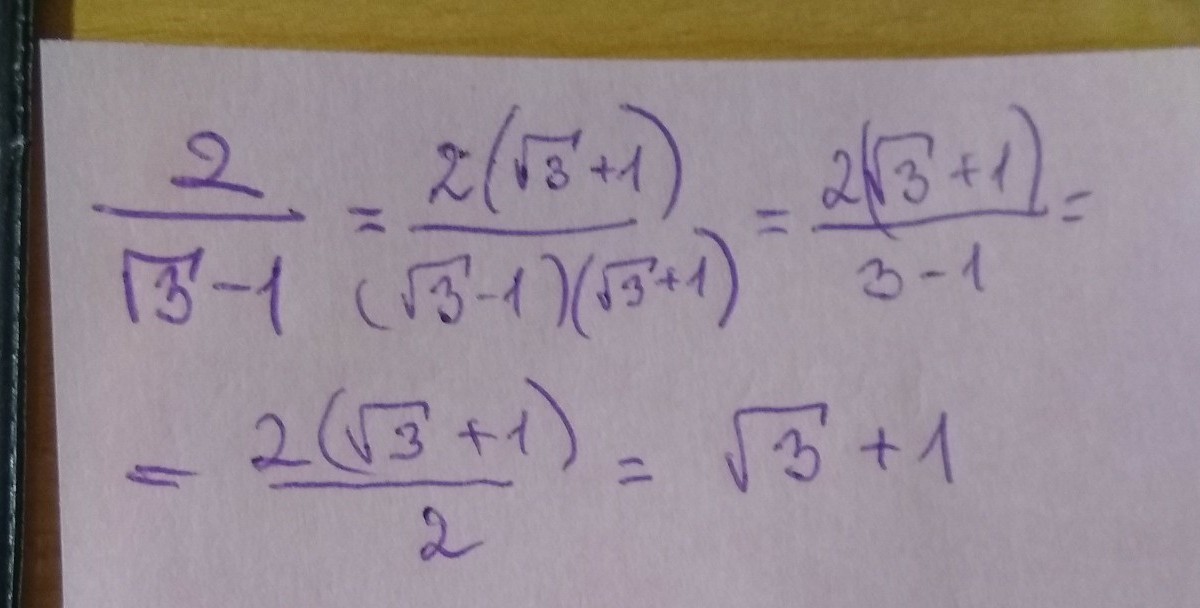 2/(√3-1) = 2(√3+1)/((√3-1)(√3+1)) = 2(√3+1)/(3-1) =
= 2(√3+1)/2 = √3+1